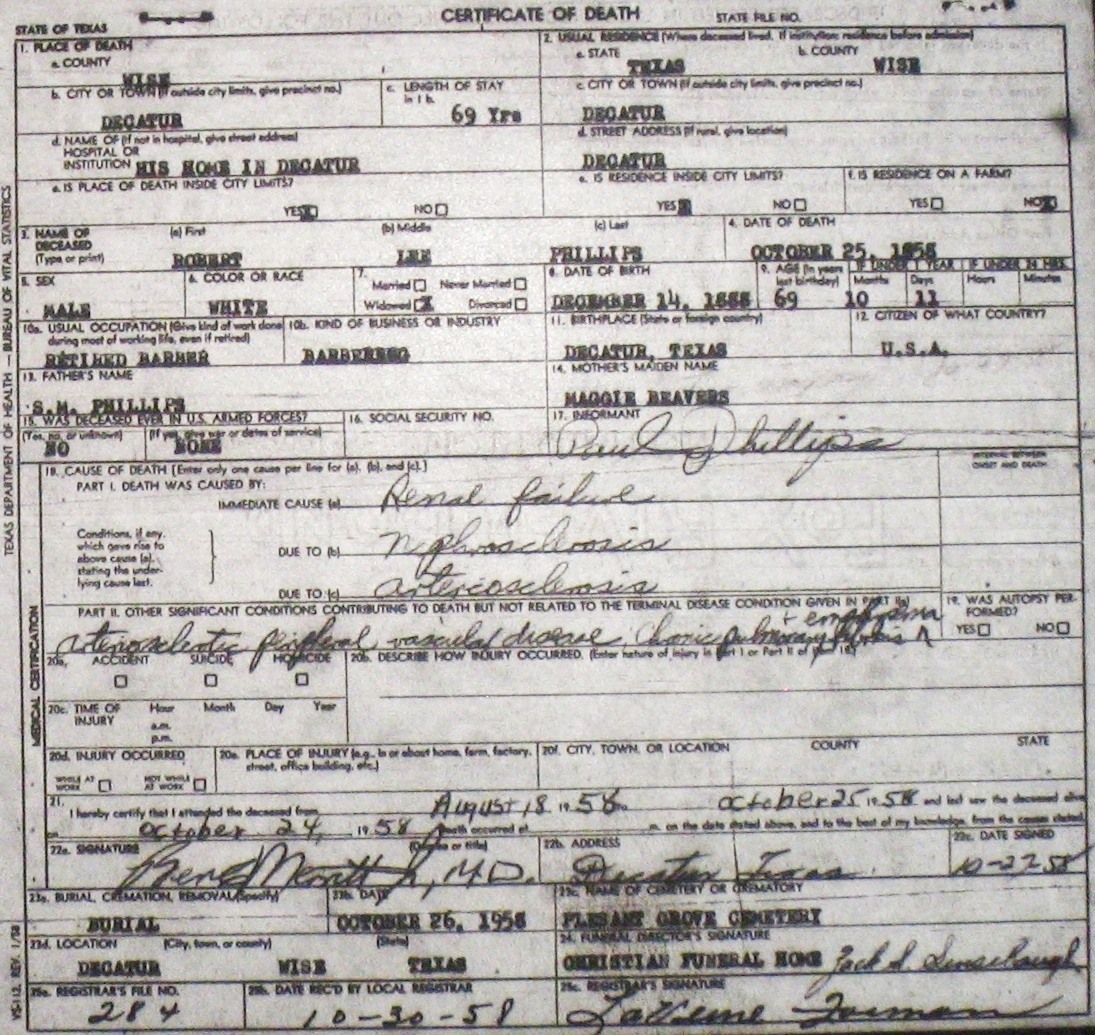 CERTIFICATE OF DEATH
STATE OF TEXAS STATE FILE NO.
1. PLACE OF DEATH
a. COUNTY
WISE
2. USUAL RESIDENCE (Where deceased lived. If institution: residence before admission)
a. STATE b. COUNTY
TEXAS WISE
b. CITY OR TOWN (If outside city limits, give precinct no.)
DECATUR
c. LENGTH OF STAY
in 1 b.
69 Yrs
c. CITY OR TOWN (If outside city limits, give precinct no.)
DECATUR
d. NAME OF (If not in hospital, give street address)
HOSPITAL OR
INSTITUTION HIS HOME IN DECATUR
d. STREET ADDRESS (If rural, give location)
DECATUR
e. IS PLACE OF DEATH INSIDE CITY LIMITS?
YES X NO
e. IS RESIDENCE INSIDE CITY LIMITS?
YES X NO
f. IS RESIDENCE ON A FARM?
YES NO X
3. NAME OF
DECEASED
(Type or print)
(a) First (b) Middle (c) Last
ROBERT LEE PHILLIPS
4. DATE OF DEATH
OCTOBER 25, 1958
5. SEX
MALE
6. COLOR OR RACE
WHITE
7.
Married Never Married
Widowed X Divorced
8. DATE OF BIRTH
DECEMBER 14, 1888
9. AGE (In years
last birthday)
69
IF UNDER 1 YEAR IF UNDER 24 HRS.
Months Days Hours Minutes
10 11
10a. USUAL OCCUPATION (Give kind of work done
during most of working life, even if retired)
RETIRED BARBER
10b. KIND OF BUSINESS OR INDUSTRY
11. BIRTHPLACE (State or foreign country)
DECATUR, TEXAS
12. CITIZEN OF WHAT COUNTRY?
U.S.A.
13. FATHER'S NAME
S.M. PHILLIPS
14. MOTHER'S MAIDEN NAME
MAGGIE BEAVERS
15. WAS DECEASED EVER IN U.S. ARMED FORCES?
(Yes, no, or unknown) (If yes, give war or dates of service)
NO NONE
16. SOCIAL SECURITY NO.
17. INFORMANT
Paul Phillips
18. CAUSE OF DEATH [Enter only one cause per line for (a), (b), and (c).]
INTERVAL BETWEEN
ONSET AND DEATH
PART I. DEATH WAS CAUSED BY:
IMMEDIATE CAUSE (a) Renal failure
Conditions, if any,
which gave rise to
above cause (a),
stating the under-
lying cause last.
DUE TO (b) Nephrosclerosis
DUE TO (c) arteriosclerosis
PART II. OTHER SIGNIFICANT CONDITIONS CONTRIBUTING TO DEATH BUT NOT RELATED TO THE TERMINAL DISEASE CONDITION GIVEN IN PART I(a)
+ emphysema
arteriosclerotic peripheral vascular disease; Chronic pulmonary fibrosis
19. WAS AUTOPSY PER-
FORMED?
YES NO
20a. ACCIDENT SUICIDE HOMICIDE
20b. DESCRIBE HOW INJURY OCCURRED. (Enter nature of injury in Part I or Part II of item 18.)
20c. TIME OF
INJURY
Hour Month Day Year
a.m.
p.m.
20d. INJURY OCCURRED
WHILE AT
WORK
NOT WHILE
AT WORK
20e. PLACE OF INJURY (e.g., in or about home, farm, factory,
street, office building, etc.)
20f. CITY, TOWN, OR LOCATION COUNTY STATE
21.
I hereby certify that I attended the deceased from August 18 1958 to October 25 1958 and last saw the deceased alive
on October 24, 1958 Death occurred at m. on the date stated above, and to the best of my knowledge, from the causes stated.
22a. SIGNATURE (Degree or title)
M.D.
22b. ADDRESS
Decatur Texas
22c. DATE SIGNED
10-27-58
23a. BURIAL, CREMATION, REMOVAL (Specify)
BURIAL
23b. DATE
OCTOBER 26, 1958
23c. NAME OF CEMETERY OR CREMATORY
PLESANT GROVE CEMETERY
23d. LOCATION (City, town, or county) (State)
DECATUR WISE TEXAS
24. FUNERAL DIRECTOR'S SIGNATURE
CHRISTIAN FUNERAL HOME
25a. REGISTRAR'S FILE NO.
284
25b. DATE REC'D BY LOCAL REGISTRAR
10-30-58
25c. REGISTRAR'S SIGNATURE
LaVerne Forman
TEXAS DEPARTMENT OF HEALTH — BUREAU OF VITAL STATISTICS
MEDICAL CERTIFICATION
VS-112, REV. 1/58